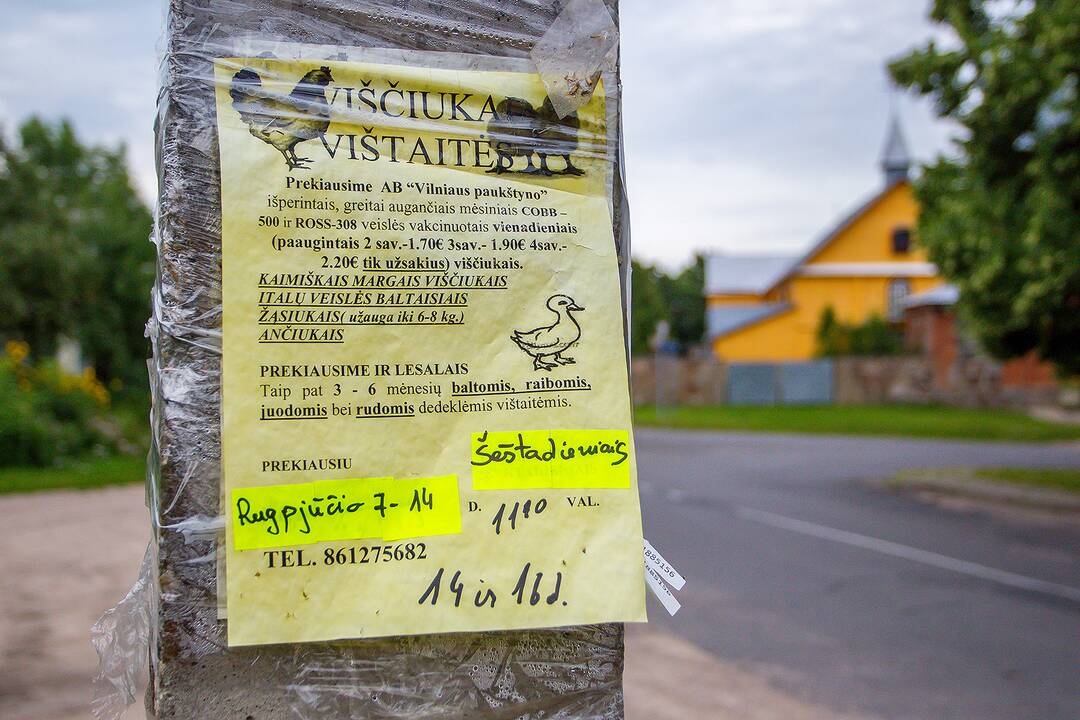 VIŠČIUKA
VIŠTAITĖS
Prekiausime AB “Vilniaus paukštyno”
išperintais, greitai augančiais mėsiniais COBB –
500 ir ROSS-308 veislės vakcinuotais vienadieniais
(paaugintais 2 sav.-1.70€ 3sav.- 1.90€ 4sav.-
2.20€ tik užsakius) viščiukais.
KAIMIŠKAIS MARGAIS VIŠČIUKAIS
ITALU VEISLĖS BALTAISIAIS
ŽĄSIUKAIS( užauga iki 6-8 kg.)
ANČIUKAIS
PREKIAUSIME IR LESALAIS
Taip pat 3 - 6 mėnesių baltomis, raibomis,
juodomis bei rudomis dedeklėmis vištaitėmis.
Šeštadieniais
PREKIAUSIU
Rugpjūčio 7-14 D. 11⁰⁰ VAL.
TEL. 861275682
14 ir 16 d.
1885156